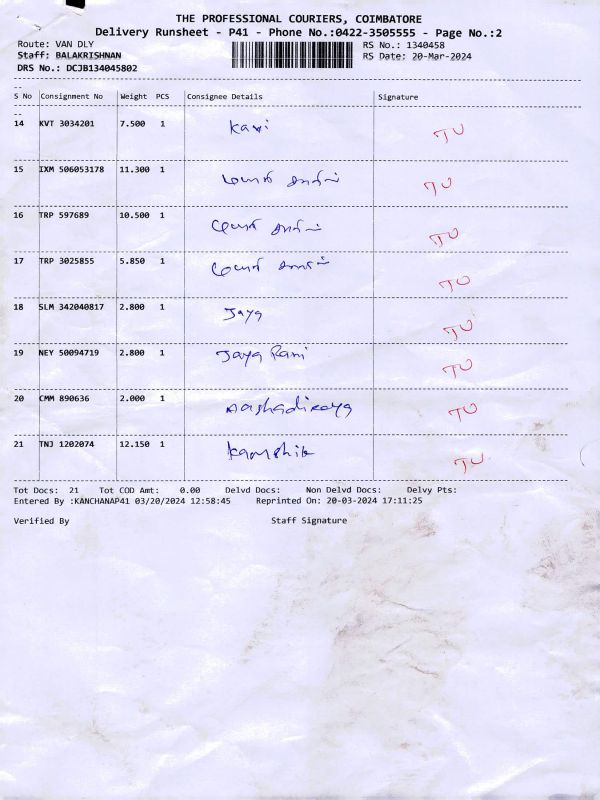 THE PROFESSIONAL COURIERS, COIMBATORE
Delivery Runsheet - P41 - Phone No.:0422-3505555 - Page No.:2
Route: VAN DLY RS No.: 1340458
Staff: BALAKRISHNAN RS Date: 20-Mar-2024
DRS No.: DCJB134045802
S No Consignment No Weight PCS Consignee Details Signature
14 KVT 3034201 7.500 1 Kavi
15 IXM 506053178 11.300 1
16 TRP 597689 10.500 1
17 TRP 3025855 5.850 1
18 SLM 342040817 2.800 1 Jaya
19 NEY 50094719 2.800 1 Jaya Rani
20 CMM 890636 2.000 1
21 TNJ 1202074 12.150 1
Tot Docs: 21 Tot COD Amt: 0.00 Delvd Docs: Non Delvd Docs: Delvy Pts:
Entered By :KANCHANAP41 03/20/2024 12:58:45 Reprinted On: 20-03-2024 17:11:25
Verified By Staff Signature